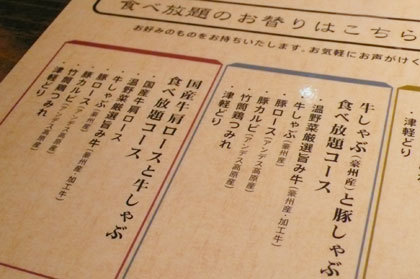 食べ放題のお替りはこちら
お好みのものをお持ちいたします。お気軽にお声がけく
牛しゃぶ(豪州産)と豚しゃぶ
食べ放題コース
・温野菜厳選旨み牛
牛しゃぶ(豪州産・加工牛)
・豚ロース(豪州産)
・豚カルビ(アンデス高原産)
・竹筒鶏つみれ
・津軽どり
国産牛肩ロースと牛しゃぶ
食べ放題コース
・国産牛肩ロース
・温野菜厳選旨み牛
牛しゃぶ(豪州産・加工牛)
・豚ロース(豪州産)
・豚カルビ(アンデス高原産)
・竹筒鶏つみれ
・津軽どり